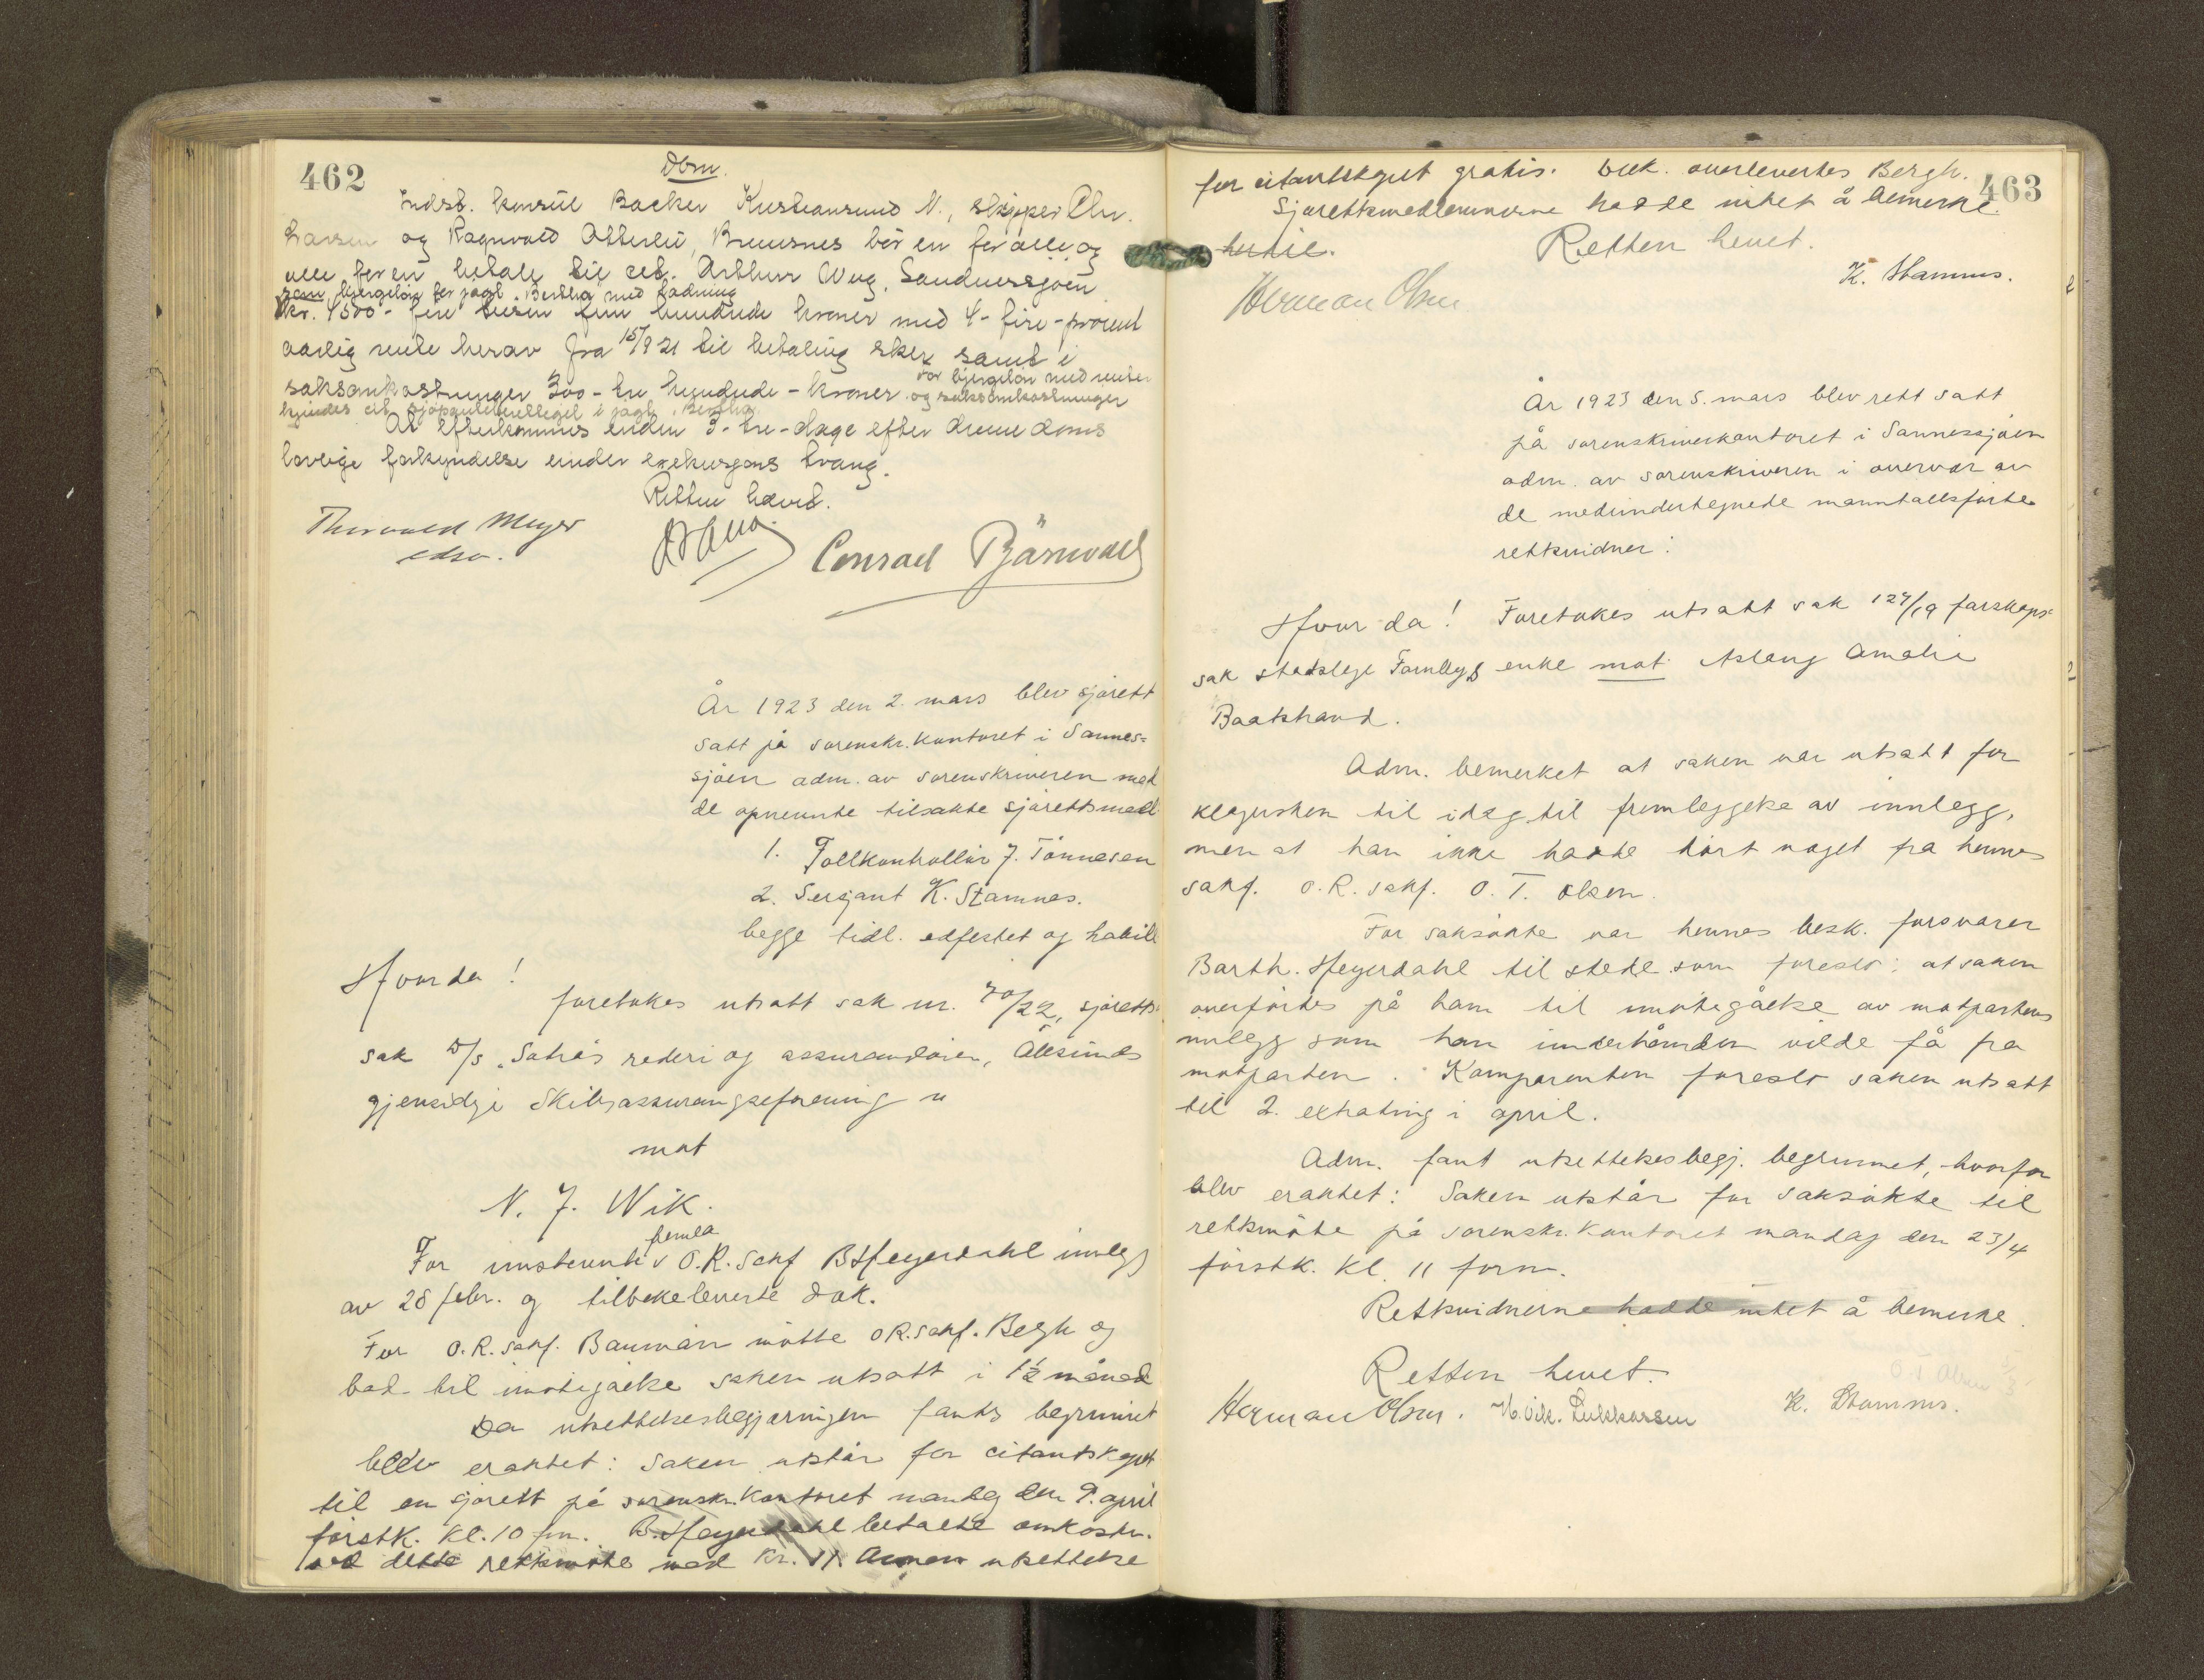 462
Dom.
Indst. konsul Backer Kristiansund N., skipper Chr.
Larsen og Ragnvald Otterlei, Bremsnes bör en for alle og
alle for en betale til cit. Arthur Wug, Sandnessjøen
som bjergelön for jagt "Bertha" med ladning
kr. 4500 - fire tusen fem hundrede kroner med 4 - fire - procent
aarlig rente herav fra 15/9 21 til betaling sker samt i
saksomkostninger 300 - tre hundrede - kroner. For bjergelön med renter
og saksomkostninger
kjendes cit. sjöpanteberettiget i jagt "Bertha".
At efterkommes inden 3 - tre - dage efter denne doms
lovlige forkyndelse under exekusjons tvang.
Retten hævet.
Thorvald Meyer
edsv.
Conrad Bärnvald
År 1923 den 2. mars blev sjörett
satt på sorenskr.kontoret i Sannes=
sjöen adm. av sorenskriveren med
de opnevnte tilsakte sjörettsmedl
1. Tollkontrollör J. Tönnesen
2. Sersjant K. Stamnes.
begge tidl. edfestet og habile
Hvor da!
foretokes utsatt sak nr. 70/22, sjöretts=
sak D/S "Sahrås rederi og assurandörer, Ålesunds
gjensidige Skibsassurangseforening
mot
N. J. Wik.
For innstevnte fremla O.R.sakf BHeyerdahl innlegg
av 28 febr. og tilbakeleverte dok.
For O.R.sakf. Bauman mötte O.R.sakf. Bergh og
bad til imötegåelse saken utsatt i 1½ måned
Da utsettelsesbegjæringen fants begrunnet
blev eraktet: Saken utstår for citantskapet
til en sjörett på sorenskr.kontoret mandag den 9. april
förstk. kl. 10 fm. B. Heyerdahl betalte omkostn.
ved dette rettsmöte med kr. 11. Annen utsettelse
463
for citantskapet gratis. Dok. overlevertes Bergh.
Sjörettsmedlemmerne hadde intet å bemerke
hertil.
Retten hevet.
K. Stamnes.
Herman Olsen
År 1923 den 5. mars blev rett satt
på sorenskriverkontoret i Sannessjöen
adm. av sorenskriveren i overvær av
de medundertegnede manntallsförte
rettsvidner:
Hvor da! Foretokes utsatt sak 127/19 farskaps=
sak stadslege Fornebys enke mot Aslaug Amalie
Baatstrand.
Adm. bemerket at saken var utsatt for
klagersken til idag til fremleggelse av innlegg,
men at han ikke hadde hört noget fra hennes
sakf. O.R.sakf. O. T. Olsen.
For saksökte var hennes besk. forsvarer
Barth. Heyerdahl til stede som foreslo: at saken
overförtes på ham til imötegåelse av motpartens
innlegg som han underhånden vilde få fra
motparten. Komparenten foreslo saken utsatt
til 2. extrating i april.
Adm. fant utsettelsesbegj. begrunnet, hvorfor
blev eraktet: Saken utstår for saksökte til
rettsmöte på sorenskr.kontoret mandag den 23/4
förstk. kl. 11 form.
Rettsvidnerne hadde intet å bemerke.
Retten hevet.
Herman Olsen. H. Vik. Lukkassen K. Stamnes.